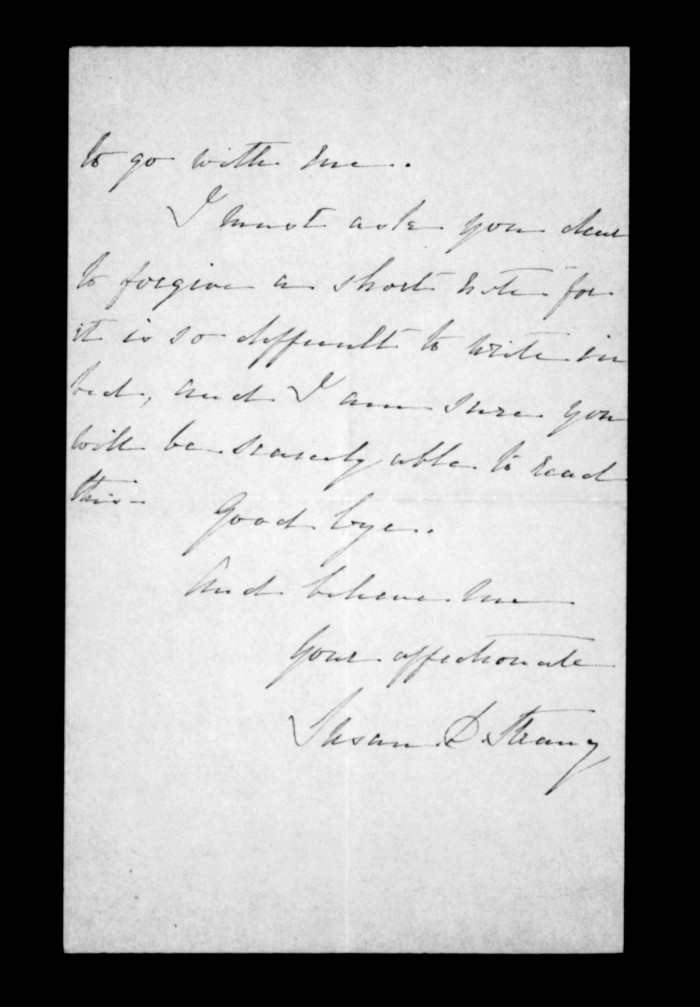 to go with me.
I must ask you dear
to forgive a short note for
it is so difficult to write in
bed, and I am sure you
will be scarcely able to read
this.
Good bye.
And believe me
Your affectionate
Susan D. Strang